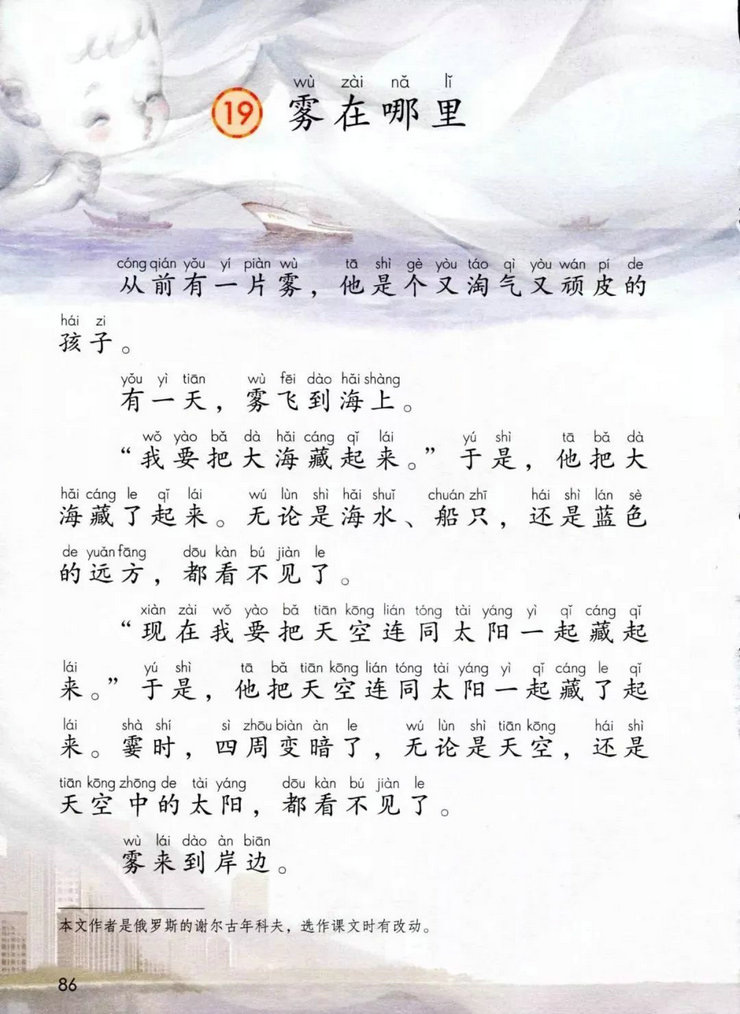 wù zài nǎ lǐ
19 雾在哪里
cóng qián yǒu yí piàn wù tā shì gè yòu táo qì yòu wán pí de
从前有一片雾，他是个又淘气又顽皮的
hái zi
孩子。
yǒu yì tiān wù fēi dào hǎi shàng
有一天，雾飞到海上。
wǒ yào bǎ dà hǎi cáng qǐ lái yú shì tā bǎ dà
“我要把大海藏起来。”于是，他把大
hǎi cáng le qǐ lái wú lùn shì hǎi shuǐ chuán zhī hái shì lán sè
海藏了起来。无论是海水、船只，还是蓝色
de yuǎn fāng dōu kàn bú jiàn le
的远方，都看不见了。
xiàn zài wǒ yào bǎ tiān kōng lián tóng tài yáng yì qǐ cáng qǐ
“现在我要把天空连同太阳一起藏起
lái yú shì tā bǎ tiān kōng lián tóng tài yáng yì qǐ cáng le qǐ
来。”于是，他把天空连同太阳一起藏了起
lái shà shí sì zhōu biàn àn le wú lùn shì tiān kōng hái shì
来。霎时，四周变暗了，无论是天空，还是
tiān kōng zhōng de tài yáng dōu kàn bú jiàn le
天空中的太阳，都看不见了。
wù lái dào àn biān
雾来到岸边。
本文作者是俄罗斯的谢尔古年科夫，选作课文时有改动。
86